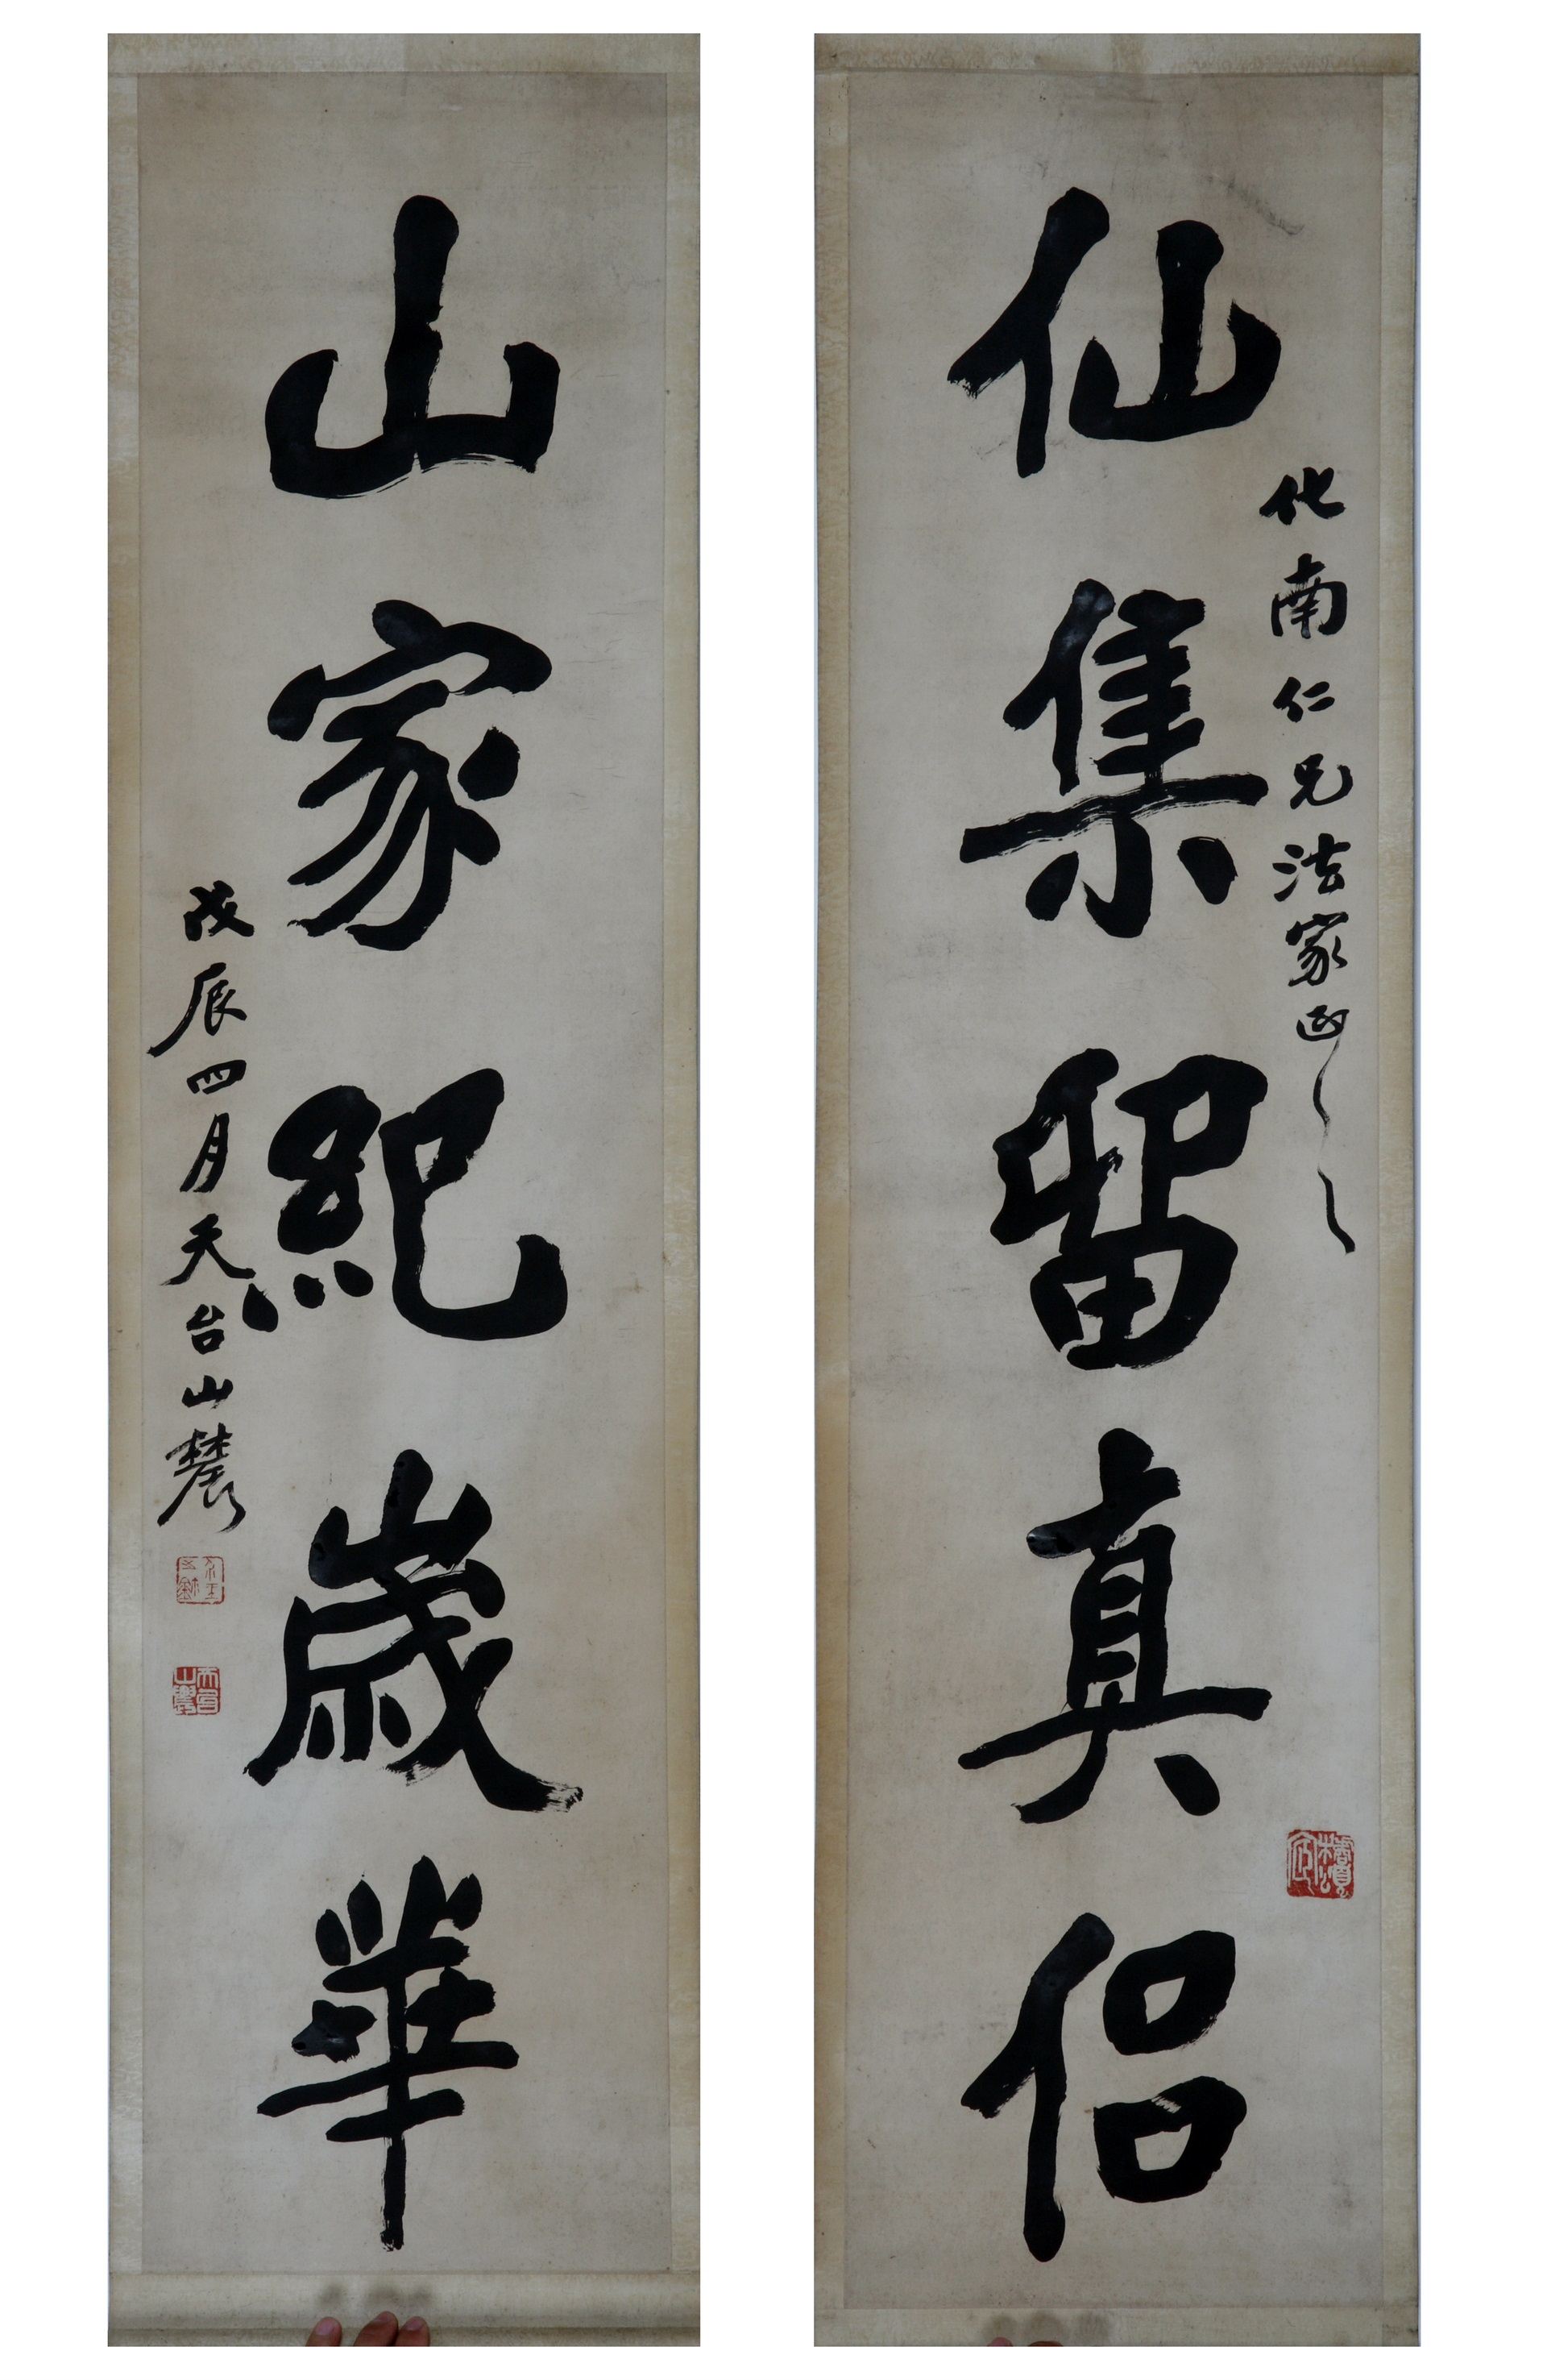 化南仁兄法家正之
仙集留真侶
山家紀歲華
戊辰四月天台山農
天台山農